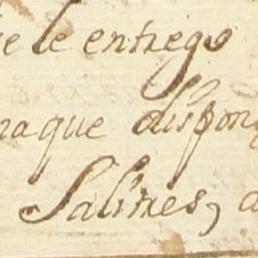 le entrego
que dispon
Salines,